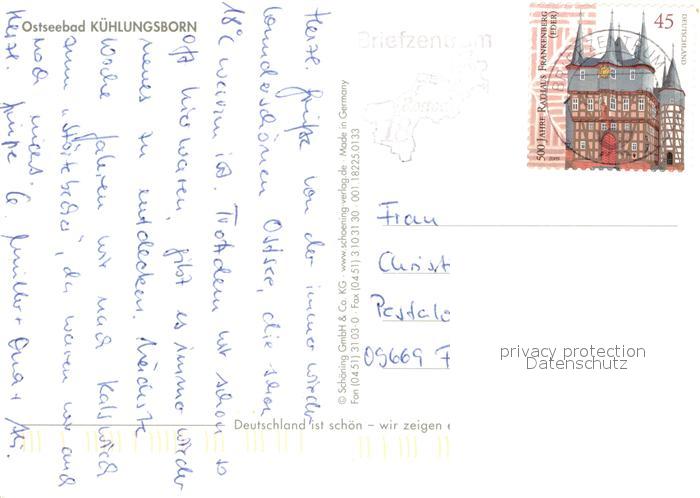 Ostseebad KÜHLUNGSBORN
Herzl. Grüße von der immer wieder
wunderschönen Ostsee, die schon
18°C warm ist. Trotzdem wir schon so
oft hier waren, gibt es immer wieder
neues zu entdecken. Nächste
Woche fahren wir nach
zum "Störtebecker", da waren wir auch
noch nicht.
Herzl. Grüße G. Müller +
© Schöning GmbH & Co. KG · www.schoening-verlag.de · Made in Germany
Fon (04 51) 31 03-0 · Fax (04 51) 3 10 31 30 · 001 18225 0133
Deutschland ist schön – wir zeigen e
Briefzentrum
18
500 JAHRE RATHAUS FRANKENBERG
(EDER)
45
DEUTSCHLAND
BRIEFZENTRUM
Frau
Christ
Pestalo
09669 F
privacy protection
Datenschutz